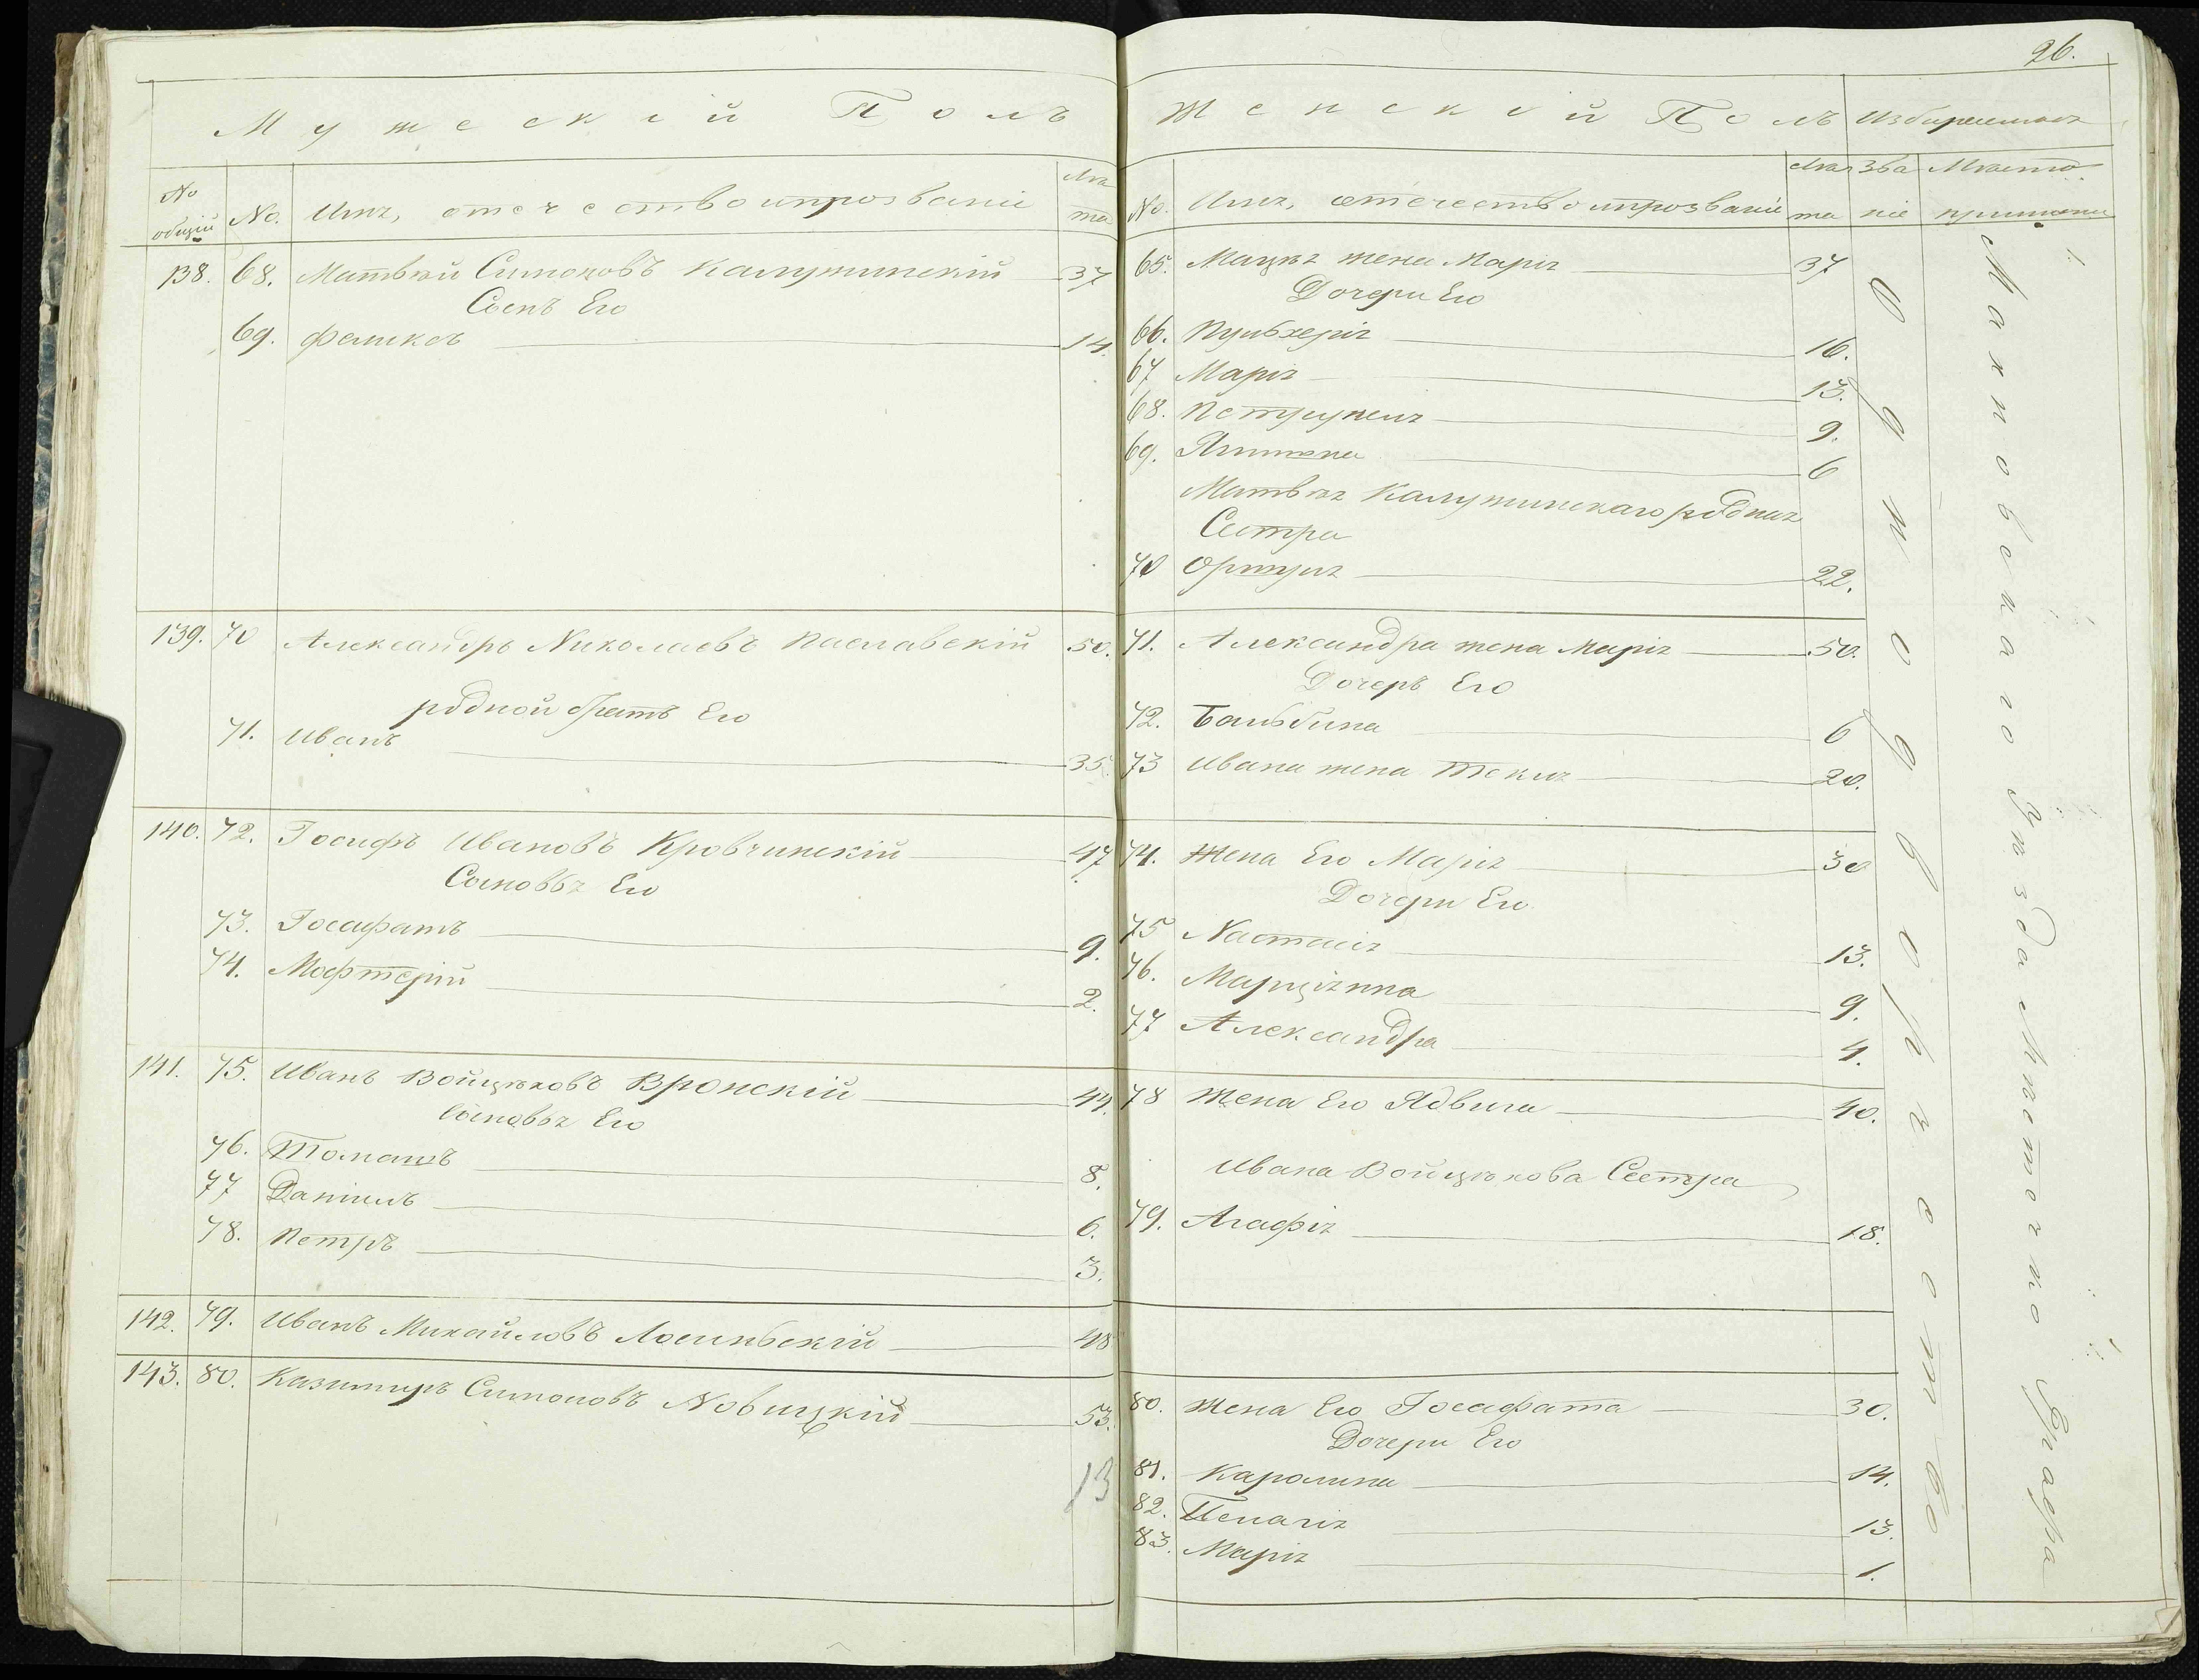 26.
Мужескій Полъ
№ общій
№.
Имя, отечество и прозваніе
Лѣта
138. 68. Матвѣй Симоновъ Калушинскій 37
Сынъ Его
69. Феликсъ 14.
139. 70 Александръ Николаевъ Паславскій 50.
родной братъ Его
71. Иванъ 35.
140. 72. Іосифъ Ивановъ Кровчинскій 47.
Сыновья Его
73. Іосафатъ 9.
74. 2.
141. 75. Иванъ Войцѣховъ Вронскій 44.
Сыновья Его
76. Томашъ 8.
77 Даніилъ 6.
78. Петръ 3.
142. 79. Иванъ Михайловъ Лосиньскій 48
143. 80. Казимиръ Симоновъ Новицкій 53.
13
Женскій Полъ
Избираемыя
№.
Имя, отечество и прозваніе
Лѣта
Званіе
Мѣсто
65. жена Марія 37
Дочери Его
66. Пульхерія 16.
67 Марія 13.
68. 9.
69. 6
Матвѣя Калушинскаго родная
Сестра
70 Оршуля 22.
71. Александра жена Марія 50.
Дочерь Его
72. Бальбина 6
73 Ивана жена Текля 20.
74. Жена Его Марія 30
Дочери Его
75 Настасія 13.
76. Марціянна 9.
77 Александра 4.
78 Жена Его Ядвига 40.
Ивана Войцѣхова Сестра
79. Агафія 18.
80. Жена Его Іосафата 30.
Дочери Его
81. Каролина 14.
82. Пелагія 13.
83. Марія 1.
Однодворческое
Махновскаго Уѣзда Мѣстечко